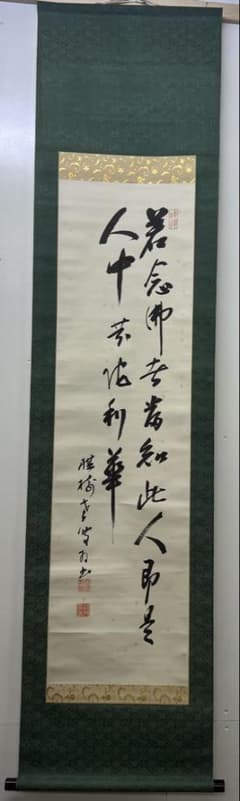 若念佛者當知此人即是
人中芬陀利華